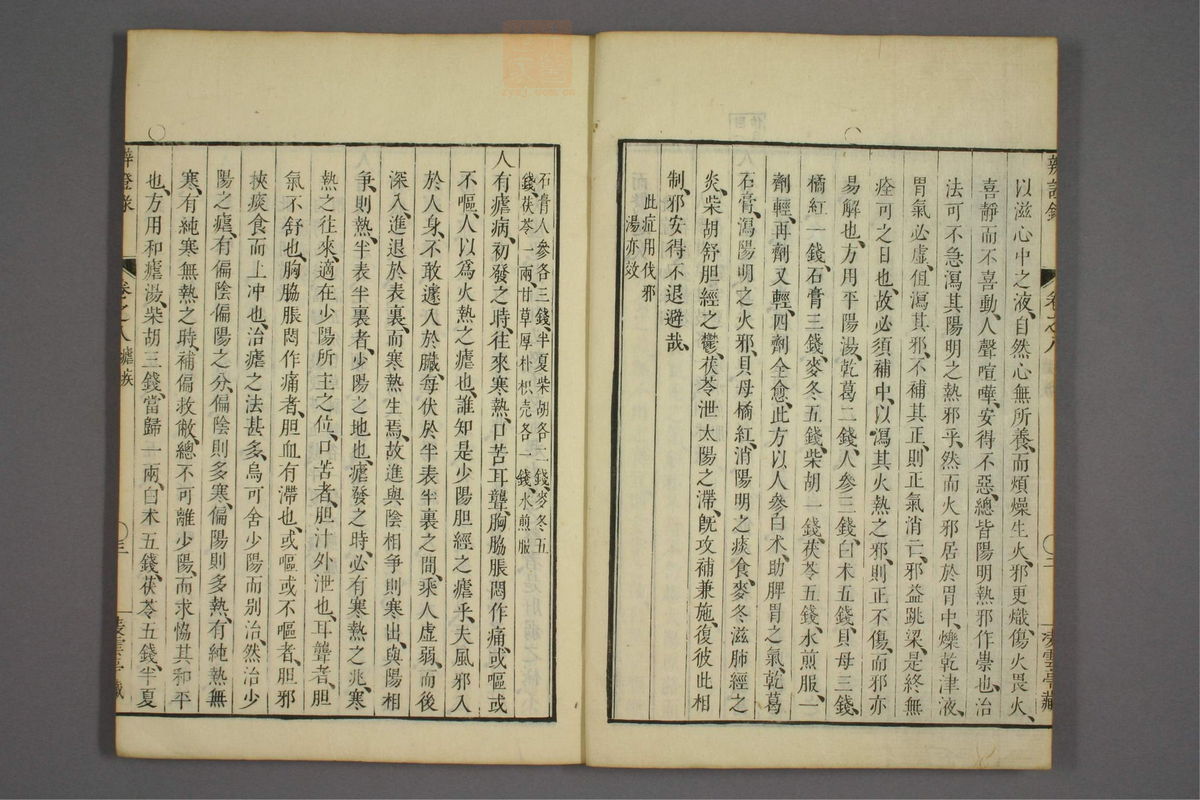 辨証錄 卷之八 二
以滋心中之液、自然心無所養、而煩燥生火、邪更熾、傷火畏火、
喜靜而不喜動、人聲喧嘩、安得不惡、總皆陽明熱邪作祟也、治
法可不急瀉其陽明之熱邪乎、然而火邪居於胃中、爍乾津液、
胃氣必虛、但瀉其邪、不補其正、則正氣消亡、邪益跳梁、是終無
痊可之日也、故必須補中、以瀉其火熱之邪、則正不傷、而邪亦
易解也、方用平陽湯、乾葛二錢、人參三錢、白术五錢、貝母三錢、
橘紅一錢、石膏三錢、麥冬五錢、柴胡一錢、茯苓五錢、水煎服、一
劑輕、再劑又輕、四劑全愈、此方以人參白术、助脾胃之氣、乾葛
石膏、瀉陽明之火邪、貝母橘紅、消陽明之痰食、麥冬滋肺經之
炎、柴胡舒胆經之鬱、茯苓泄太陽之滯、旣攻補兼施、復彼此相
制、邪安得不退避哉、
此症用伐邪
湯亦效
石膏人參各三錢、半夏柴胡各二錢、麥冬五
錢、茯苓一兩、甘草厚朴枳壳各一錢、水煎服
人有瘧病、初發之時、往來寒熱、口苦耳聾、胸脇脹悶作痛、或嘔或
不嘔、人以爲火熱之瘧也、誰知是少陽胆經之瘧乎、夫風邪入
於人身、不敢遽入於臟、每伏於半表半裏之間、乘人虛弱、而後
深入、進退於表裏、而寒熱生焉、故進與陰相爭則寒、出與陽相
爭則熱、半表半裏者、少陽之地也、瘧發之時、必有寒熱之兆、寒
熱之往來、適在少陽所主之位、口苦者、胆汁外泄也、耳聾者、胆
氣不舒也、胸脇脹悶作痛者、胆血有滯也、或嘔或不嘔者、胆邪
挾痰食而上冲也、治瘧之法甚多、烏可舍少陽而别治、然治少
陽之瘧、有偏陰偏陽之分、偏陰則多寒、偏陽則多熱、有純熱無
寒、有純寒無熱之時、補偏救敝、總不可離少陽、而求恊其和平
也、方用和瘧湯、柴胡三錢、當歸一兩、白术五錢、茯苓五錢、半夏
辨證錄 卷之八 瘧疾 三